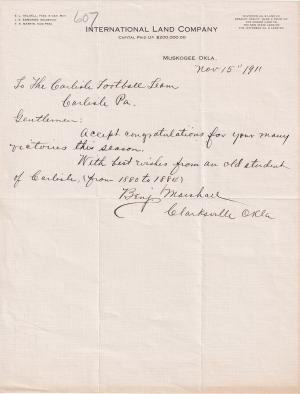 607
INTERNATIONAL LAND COMPANY
CAPITAL PAID UP $200,000.00
MUSKOGEE, OKLA.
Nov 15" 1911
To The Carlisle Football Team
Carlisle Pa.
Gentlemen:
Accept congratulations for your many
victories this season.
With best wishes from an old student
of Carlisle, (from 1880 to 1884)
Benj Marshall
Clarksville Okla